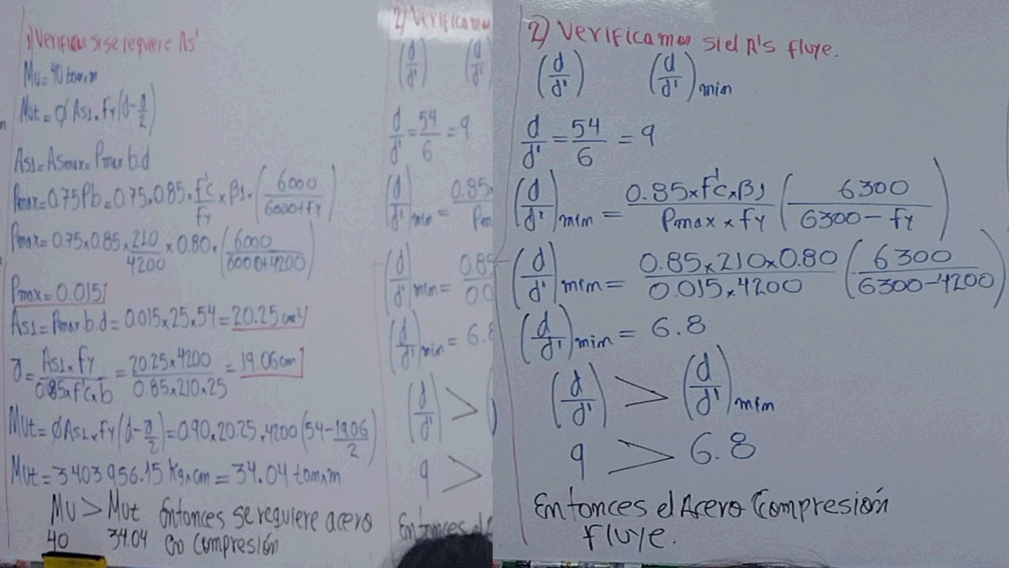 1) Verificar si se requiere As'
Mu = 40 ton.m
Mut = φ As1.fy (d - a/2)
As1 = Asmax = Pmax b.d
Pmax = 0.75Pb = 0.75x0.85x f'c/fy x β1x (6000/6000+fy)
Pmax = 0.75x0.85x 210/4200 x 0.80x (6000/6000+4200)
Pmax = 0.015
As1 = Pmax b.d = 0.015x25x54 = 20.25 cm²
a = As1 x fy/0.85xf'cxb = 20.25x4200/0.85x210x25 = 19.06 cm
Mut = φ As1xfy (d - a/2) = 0.90x20.25x4200 (54 - 19.06/2)
Mut = 3403956.15 kgxcm = 34.04 tonxm
Mu > Mut Entonces se requiere acero
40 34.04 en compresión
2) Verificamos
(d/d') (d
d/d' = 54/6 = 9
(d/d')min = 0.85x
Pm
(d/d')min = 0.85
0.0
(d/d')min = 6.8
(d/d') >
9 >
Entonces el
2) Verificamos si el A's fluye.
(d/d') (d/d')min
d/d' = 54/6 = 9
(d/d')min = 0.85xf'cxβ1/Pmax x fy (6300/6300-fy)
(d/d')min = 0.85x210x0.80/0.015x4200 (6300/6300-4200)
(d/d')min = 6.8
(d/d') > (d/d')min
9 > 6.8
Entonces el Acero Compresión
fluye.